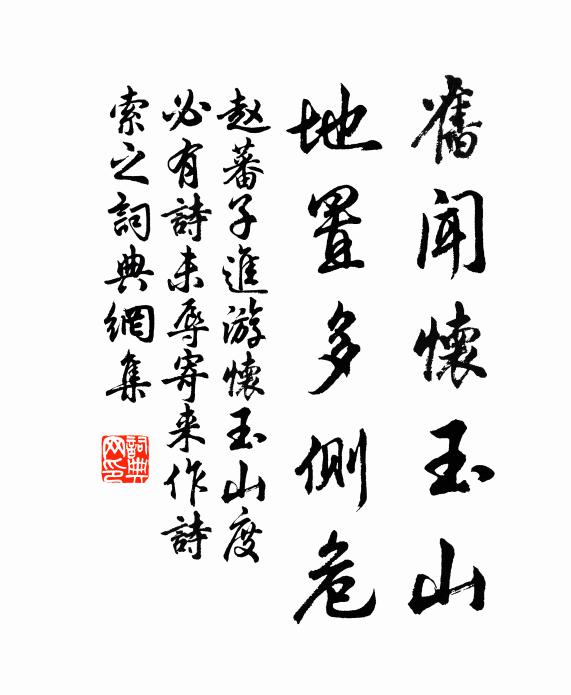 舊聞懷玉山
地置多側危
赵蕃子進游懷玉山度
必有詩未辱寄来作詩
索之詞典網集
詞典网印